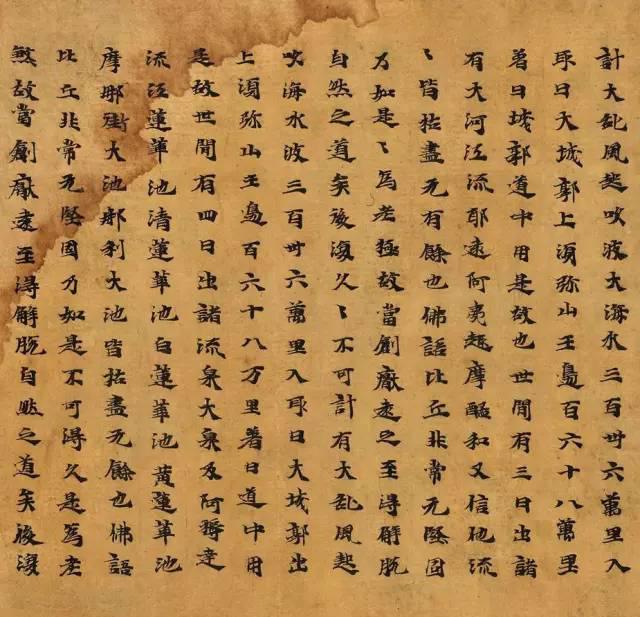 計大亂風起吹波大海水三百卅六萬里入
取日天城郭上須弥山王邊百六十八萬里
著日城郭道中用是故也世間有三日出諸
有大河江流耶速阿夷越摩醯和叉信他流
〻皆枯盡无有餘也佛語比丘非常无堅固
乃如是〻為老極故當創猒遠之至得解脫
自然之道矣後復久〻不可計有大亂風起
吹海水波三百卅六萬里入取日大城郭出
上須弥山王邊百六十八万里著日道中用
是故世間有四日出諸流泉大泉及阿耨達
流江蓮華池清蓮華池白蓮華池黃蓮華池
摩耶街大池郍利大池皆枯盡无餘也佛語
比丘非常无堅固乃如是不可得久是為老
煞故當創猒遠至得解脫自然之道矣後復